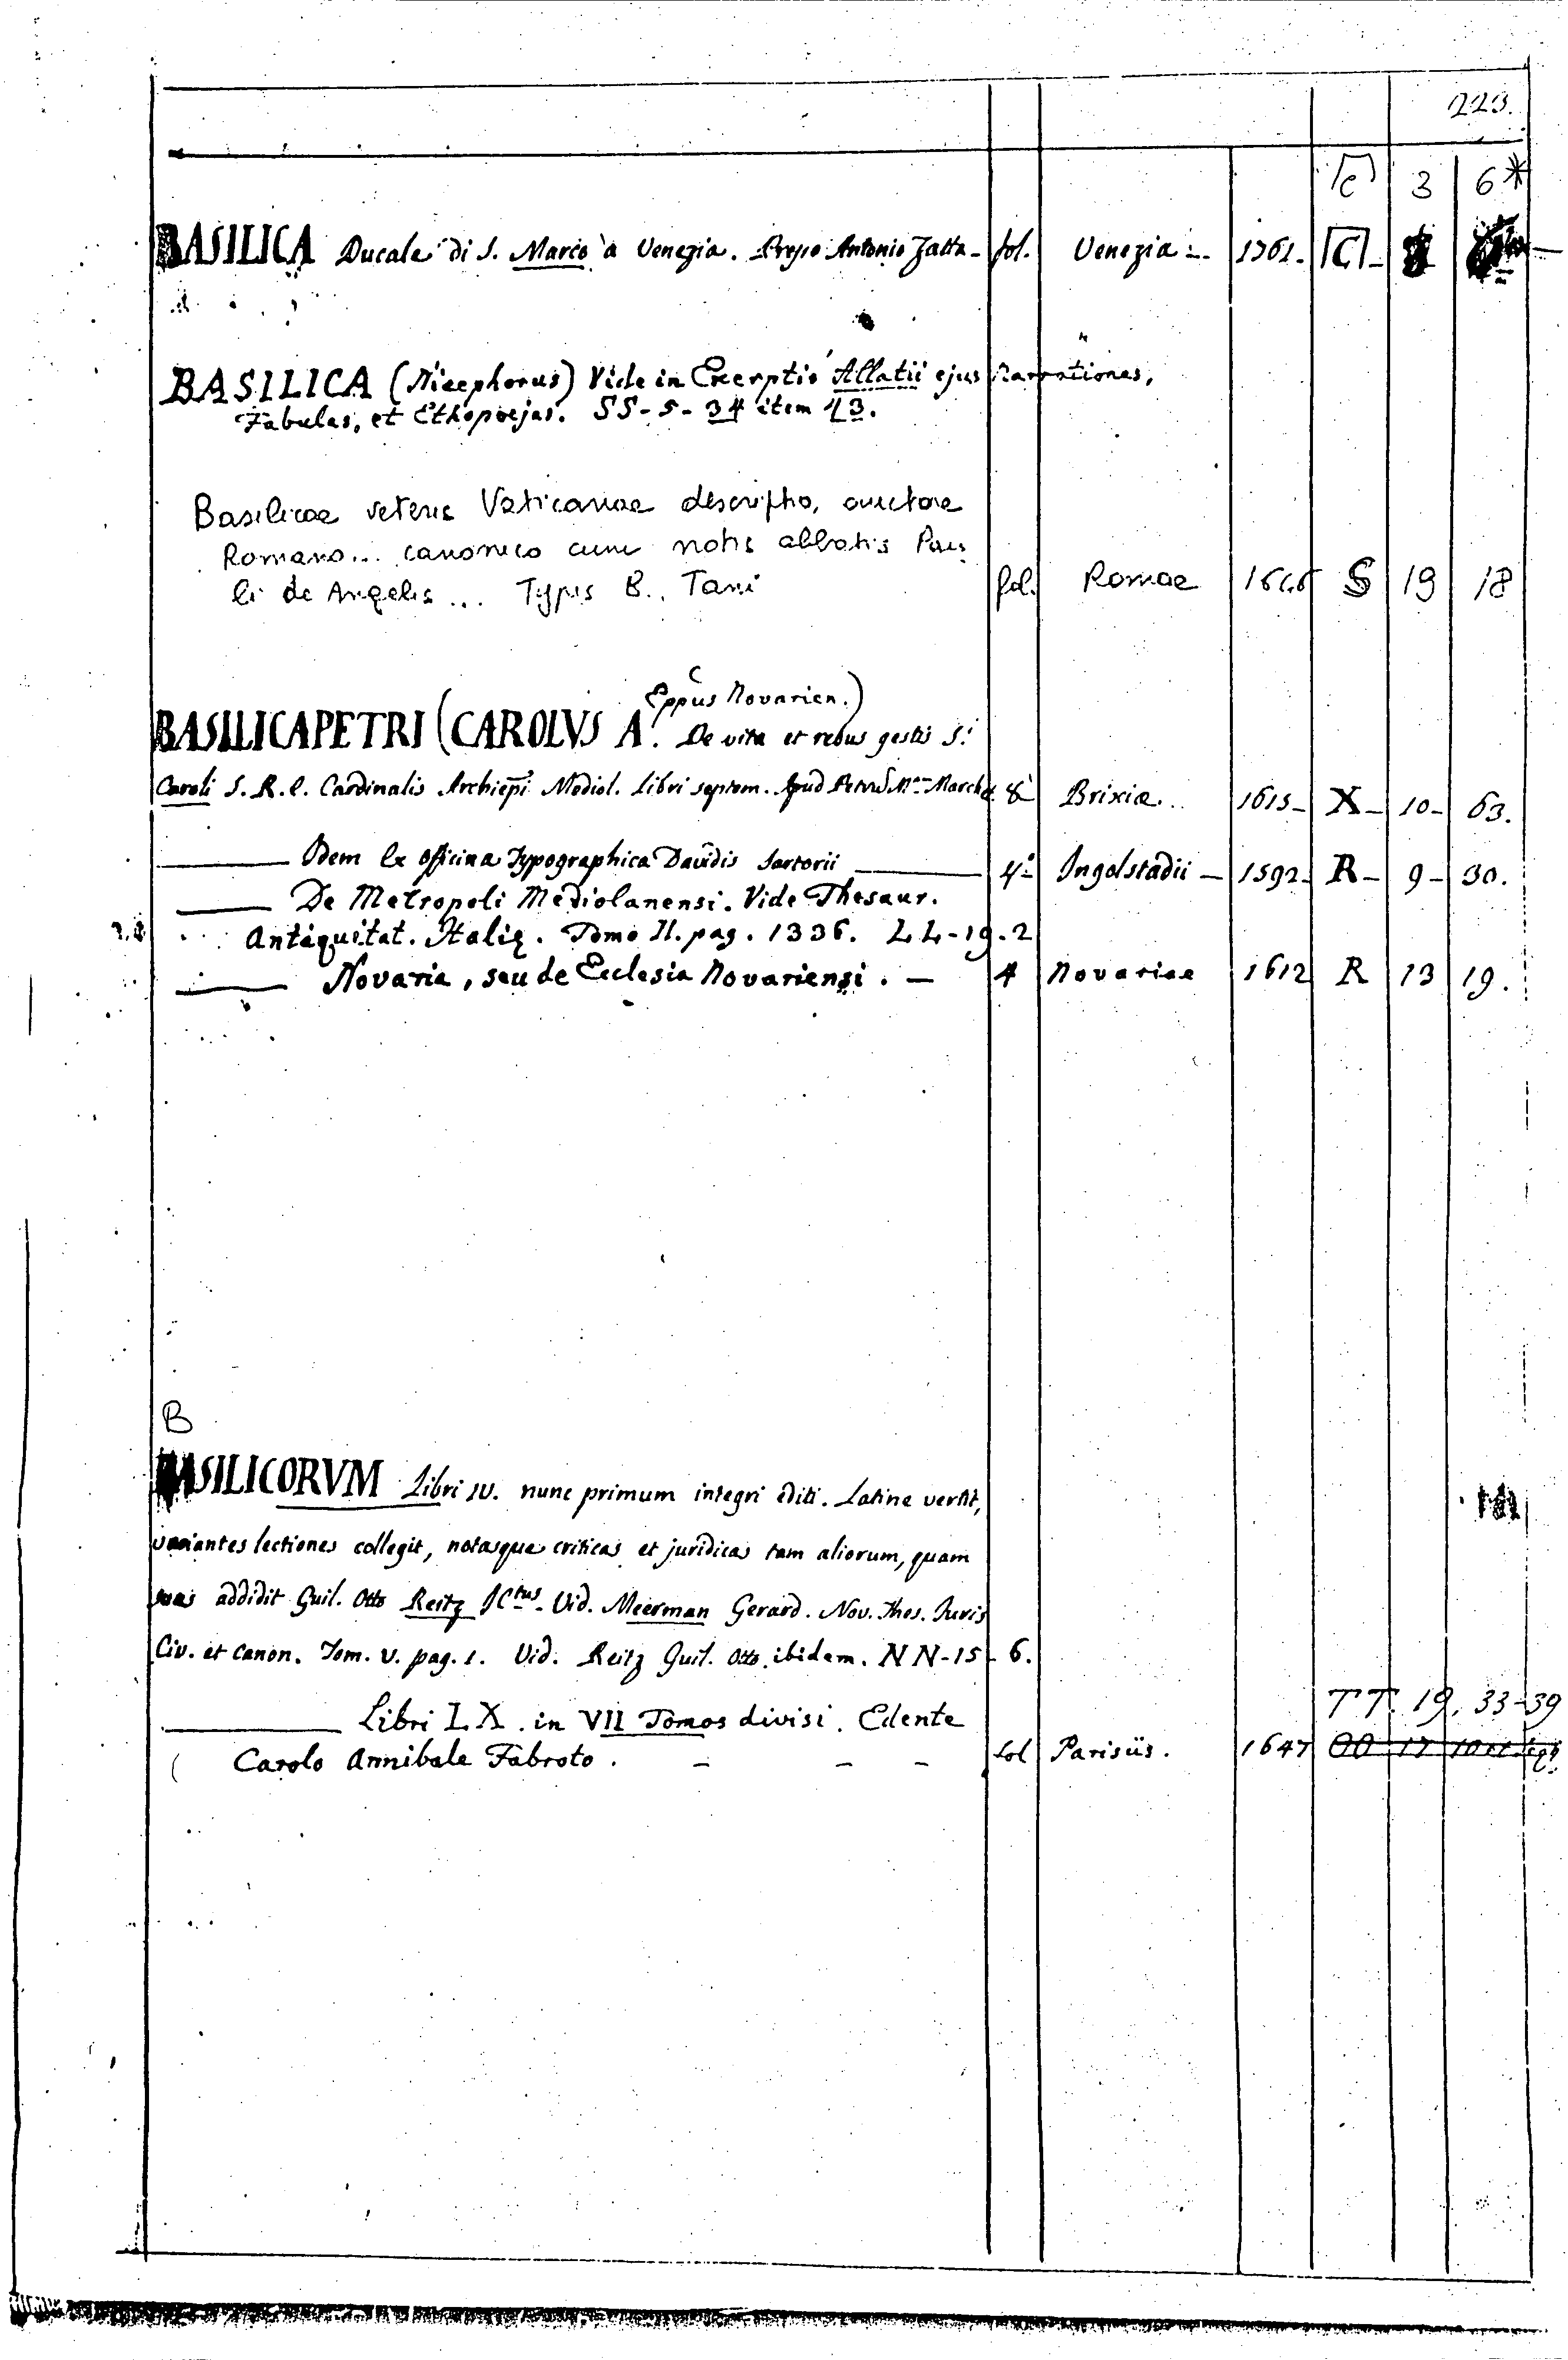 223.
C 3 6*
BASILICA Ducale di S. Marco a Venezia. Presso Antonio Zatta - fol. Venezia - 1761. C -
BASILICA (Nicephorus) Vide in Excerptis Allatii ejus Narrationes,
Fabulas, et Ethopoejas. SS - 5 - 34 item 43.
Basilicae veteris Vaticanae descriptio, auctore
Romano... canonico cum notis abbatis Pau
li de Angelis ... Typis B. Tani fol. Romae 1646 S 19 18
Eppus Novarien.)
BASILICAPETRI (CAROLVS A. De vita et rebus gestis S.
Caroli S. R. E. Cardinalis Archiepi Mediol. Libri septem. Apud Petrum Mam Marchet. 8 Brixiæ.. 1615 - X - 10 - 63.
Idem Ex Officina Typographica Davidis Sartorii 4o Ingolstadii - 1592 - R - 9 - 30.
De Metropoli Mediolanensi. Vide Thesaur.
Antiquitat. Italiæ. Tomo II. pag. 1336. LL - 19 . 2
Novaria, seu de Ecclesia Novariensi . - 4 Novariae 1612 R 13 19.
B
BASILICORVM Libri IV. nunc primum integri editi. Latine vertit,
variantes lectiones collegit, notasque criticas et juridicas tam aliorum, quam
suas addidit Guil. Otto Reitz JCtus. Vid. Meerman Gerard. Nov. Thes. Juris
Civ. et Canon. Tom. V. pag. 1. Vid. Reitz Guil. Otto. ibidem. NN - 15 - 6.
TT. 19. 33-39
Libri LX. in VII Tomos divisi. Edente
Carolo Annibale Fabroto . - - - fol Parisiis. 1647 OO 17